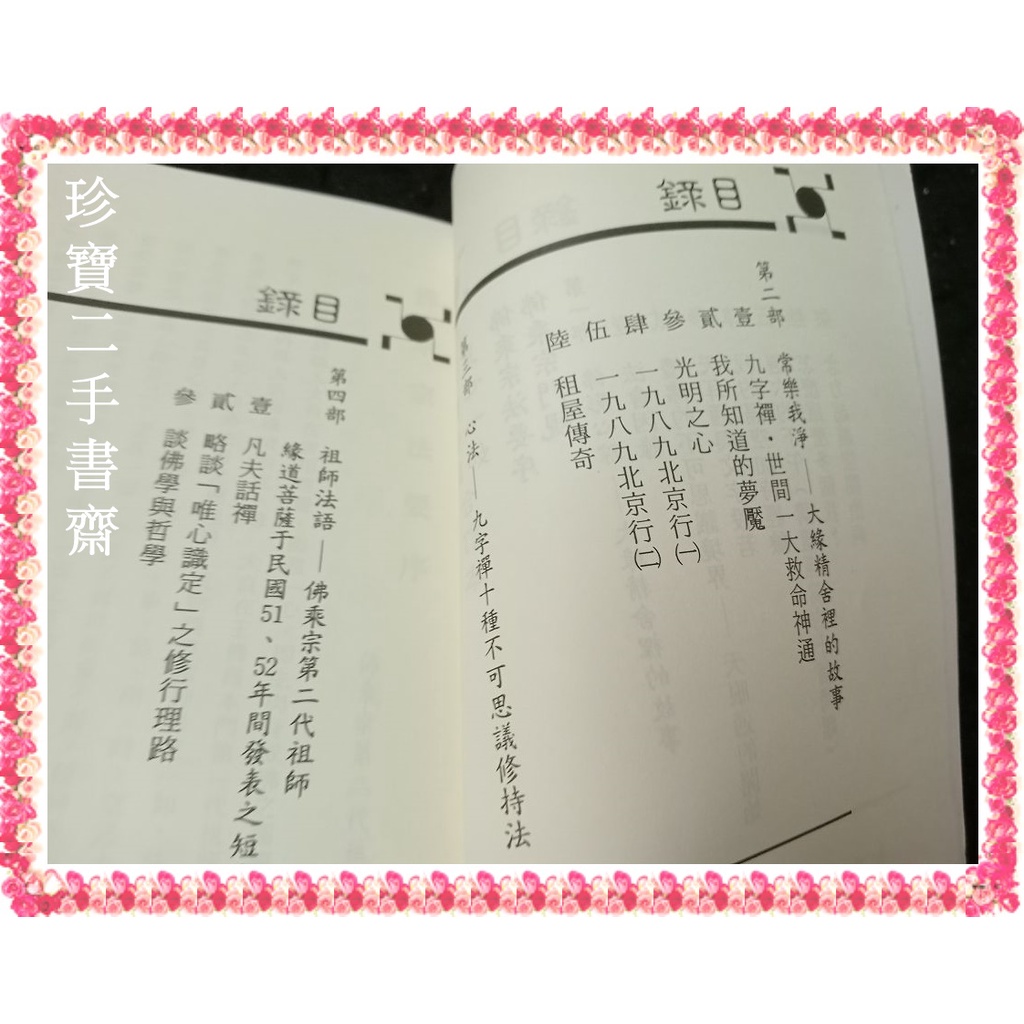 珍寶二手書齋
目錄
第二部 常樂我淨——大緣精舍裡的故事
壹 九字禪・世間一大救命神通
貳 我所知道的夢魘
參 光明之心
肆 一九八九北京行㈠
伍 一九八九北京行㈡
陸 租屋傳奇
第三部 心法——九字禪十種不可思議修持法
目錄
第四部 祖師法語——佛乘宗第二代祖師
緣道菩薩于民國51、52年間發表之短
壹 凡夫話禪
貳 略談「唯心識定」之修行理路
參 談佛學與哲學